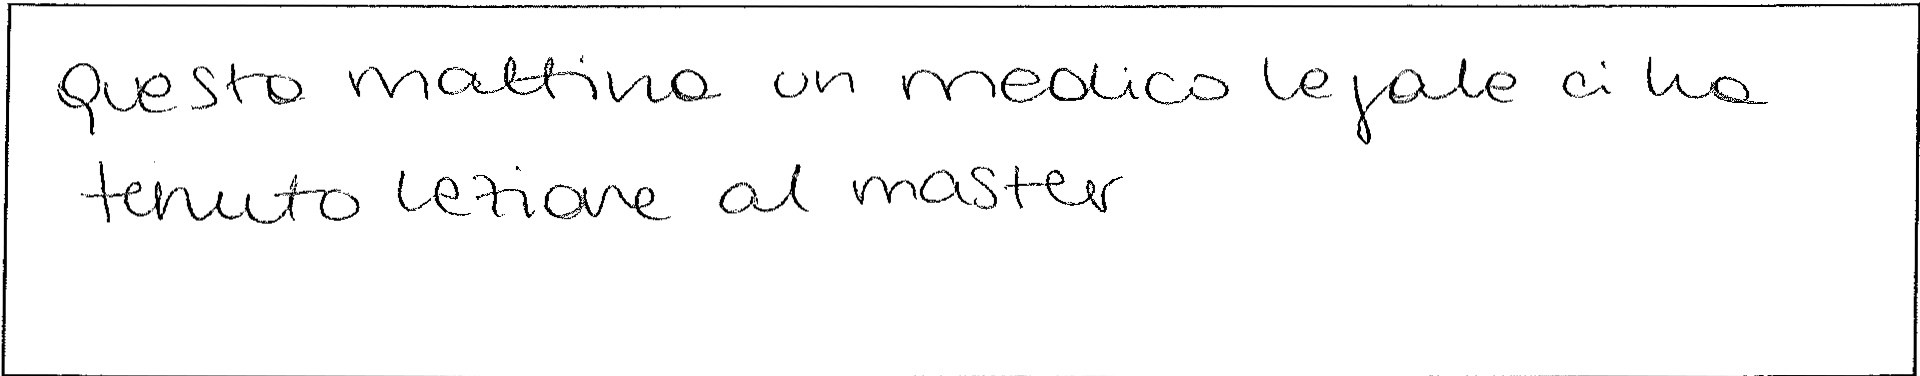 Questo mattina un medico legale ci ha
tenuto lezione al master